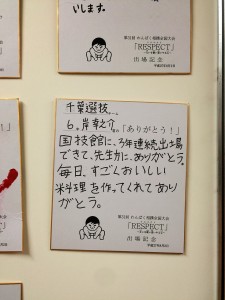 いします。
「RESPECT」
出場記念
千葉選抜
6. 岸幸之介。「ありがとう！」
国技館に、3年連続出場
できて、先生方に、ありがとう。
毎日、すごくおいしい
料理を作ってくれてあり
がとう。
第31回 わんぱく相撲全国大会
「RESPECT」
出場記念
第31回 わんぱく相撲全国大会
「RESPECT」